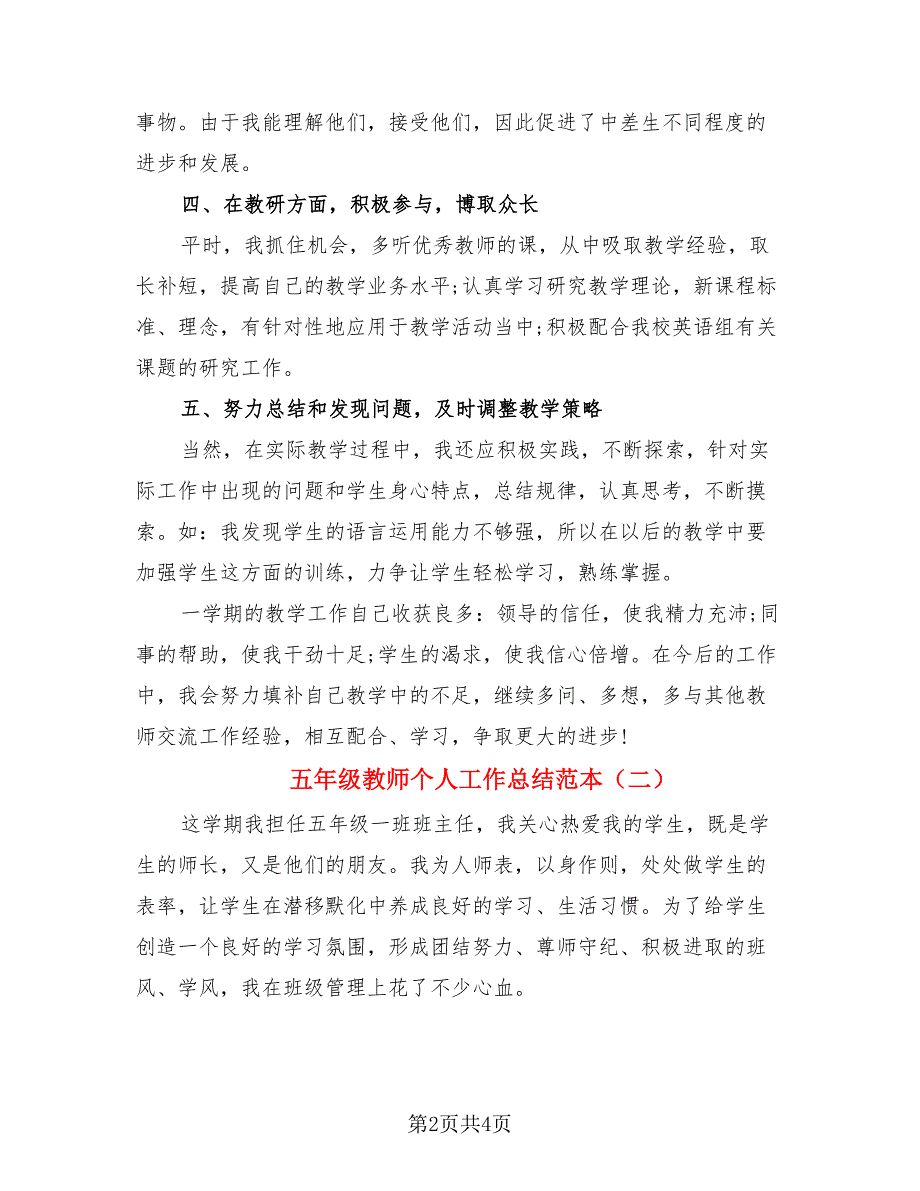 事物。由于我能理解他们，接受他们，因此促进了中差生不同程度的
进步和发展。
四、在教研方面，积极参与，博取众长
平时，我抓住机会，多听优秀教师的课，从中吸取教学经验，取
长补短，提高自己的教学业务水平;认真学习研究教学理论，新课程标
准、理念，有针对性地应用于教学活动当中;积极配合我校英语组有关
课题的研究工作。
五、努力总结和发现问题，及时调整教学策略
当然，在实际教学过程中，我还应积极实践，不断探索，针对实
际工作中出现的问题和学生身心特点，总结规律，认真思考，不断摸
索。如：我发现学生的语言运用能力不够强，所以在以后的教学中要
加强学生这方面的训练，力争让学生轻松学习，熟练掌握。
一学期的教学工作自己收获良多：领导的信任，使我精力充沛;同
事的帮助，使我干劲十足;学生的渴求，使我信心倍增。在今后的工作
中，我会努力填补自己教学中的不足，继续多问、多想，多与其他教
师交流工作经验，相互配合、学习，争取更大的进步!
五年级教师个人工作总结范本（二）
这学期我担任五年级一班班主任，我关心热爱我的学生，既是学
生的师长，又是他们的朋友。我为人师表，以身作则，处处做学生的
表率，让学生在潜移默化中养成良好的学习、生活习惯。为了给学生
创造一个良好的学习氛围，形成团结努力、尊师守纪、积极进取的班
风、学风，我在班级管理上花了不少心血。
第2页共4页